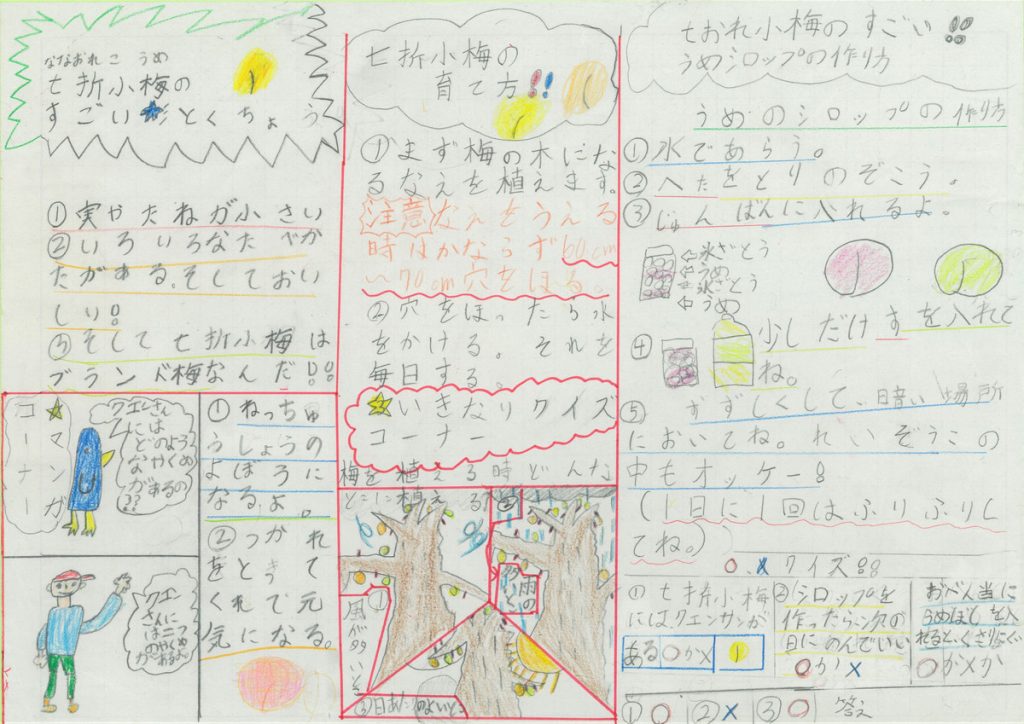 ななおれこうめ
七折小梅の
すごい★とくちょう
①実やたねが小さい
②いろいろなたべか
たがある。そしておい
しい!!
③そして七折小梅は
ブランド梅なんだ!!
★マンガ
コーナー
クエンさん
には
どのよう
なやくめ
があるの
??
クエン
さんに
は二つ
のやくめ
があるよ
①ねっちゅ
うしょうの
よぼうに
なるよ。
②つかれ
をとって
くれて元
気になる。
七折小梅の
育て方!!
①まず梅の木にな
るなえを植えます。
注意なえをうえる
時はかならず60cm
~70cm穴をほる。
②穴をほったら水
をかける。それを
毎日する。
★いきなりクイズ
コーナー
梅を植える時どんな
とこに植える
①
風が
②
雨の
③日あたりのよいとこ
七おれ小梅のすごい!!
うめシロップの作り方
うめのシロップの作り方
①水であらう。
②へたをとりのぞこう。
③じゅんばんに入れるよ。
←氷ざとう
←うめ
←氷ざとう
←うめ
④少しだけすを入れて
ね。
⑤すずしくて、暗い場所
においてね。れいぞうこの
中もオッケー!!
(1日に1回はふりふりし
てね。)
○、×クイズ!!
①七折小梅
にはクエンサンが
ある○か×
②シロップを
作ったら次の
日にのんでいい
○か×
おべん当に
うめぼしを入
れるとくさりにくい
○か×か
①○ ②× ③○ 答え